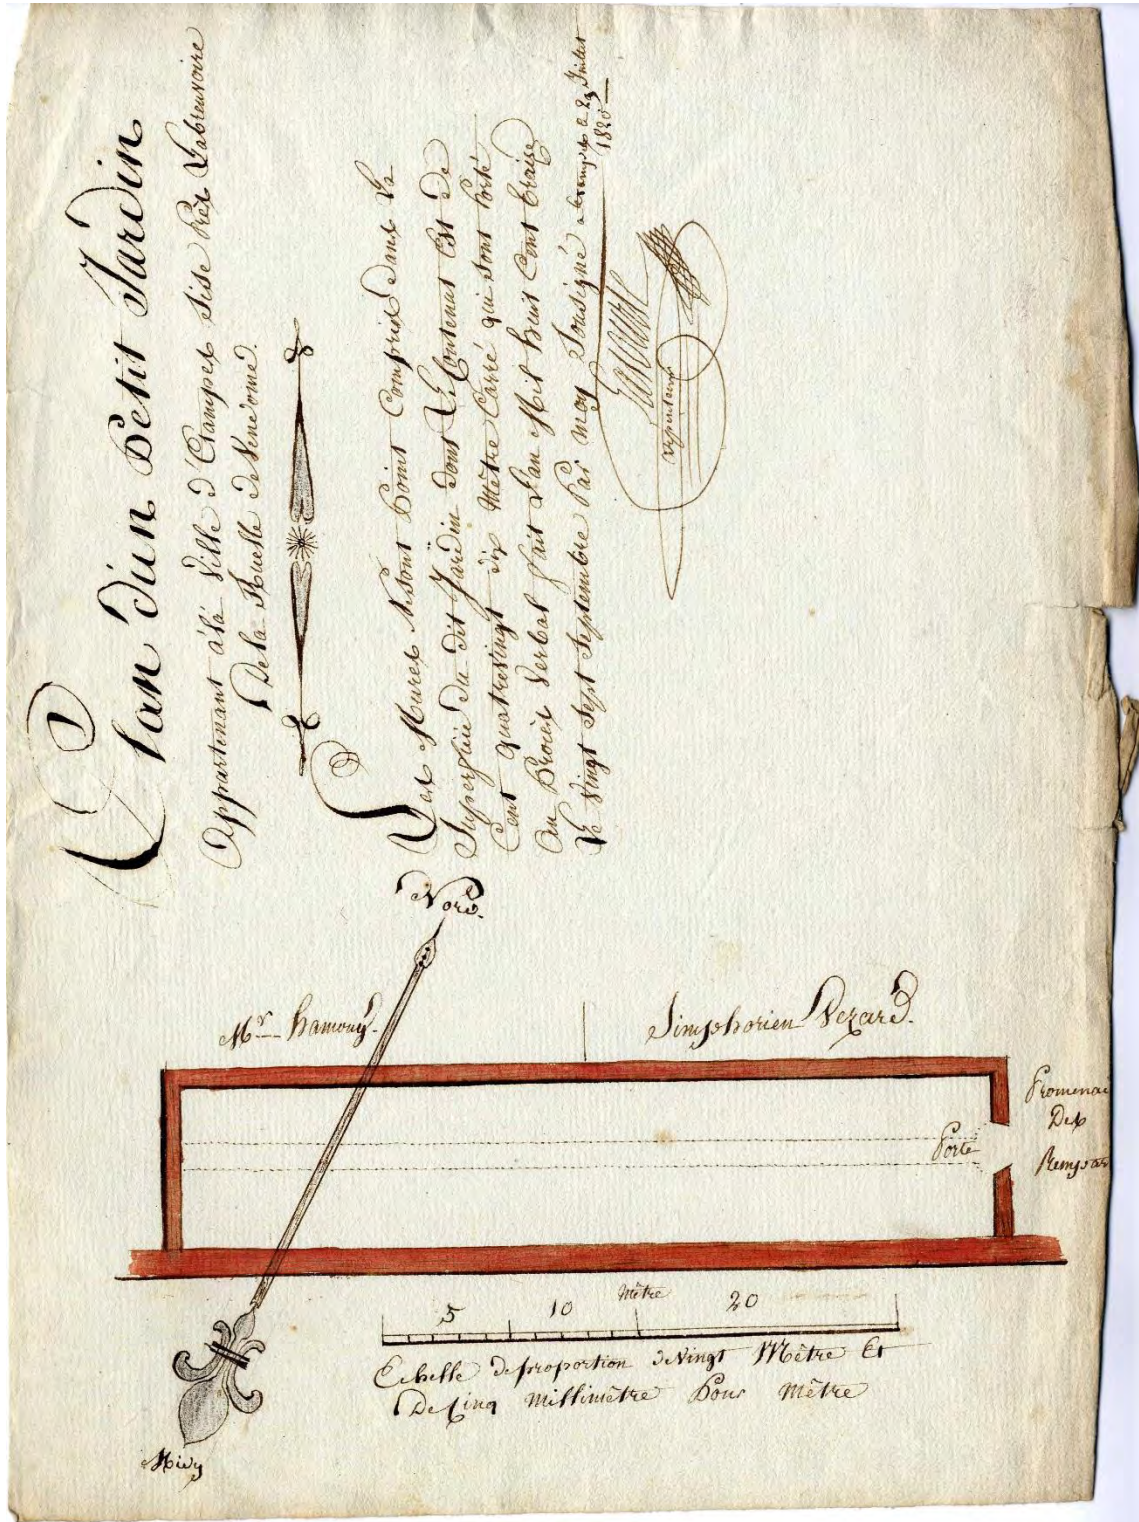 Plan d'un Petit Jardin
Appartenant à la Ville d'Etampes Sise Près Labreuvoire
De la Ruelle de Vendome.
Les Mures Ne Sont Point Compris Dans La
Superficie du dit Jardin dont Le Contenut Est de
Cent quatrevingt dix Mêtre Carré qui sont Porté
Au Procès Verbal fait L'an Mil huit Cent traise
Le Vingt Sept Septembre Par moy Sousigné a Etampes le 29 Juillet
1820
arpenteur
Nord.
Mr. hamouy.
Simphorien Vezard.
Promenad
Des
Rempar
Porte
Mètre
5 10 20
Echelle de proportion de Vingt Mêtre Et
De Cinq Millimêtre Pour Mêtre
Midy